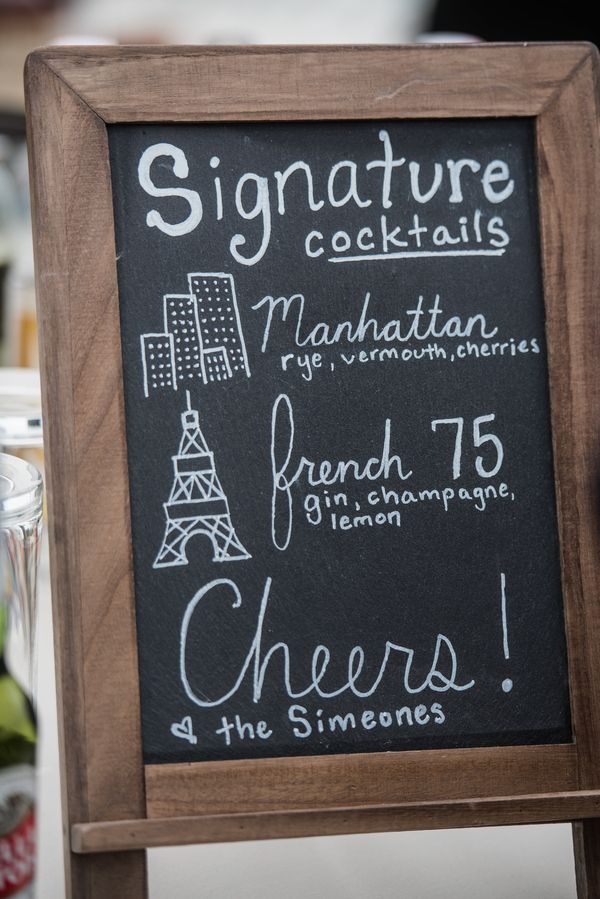 Signature
cocktails
Manhattan
rye, vermouth, cherries
french 75
gin, champagne,
lemon
Cheers!
the Simeones